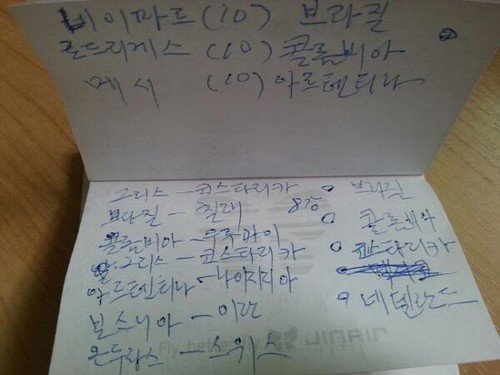 네이마르 (10) 브라질
로드리게스 (10) 콜롬비아
메시 (10) 아르헨티나
그리스 - 코스타리카
브라질 - 칠레 8강
콜롬비아 - 우루과이
그리스 - 코스타리카
아르헨티나 - 나이지리아
보스니아 - 이란
온두라스 - 스위스
브라질
콜롬비아
코스타리카
네델란드
Fly, JINAIR